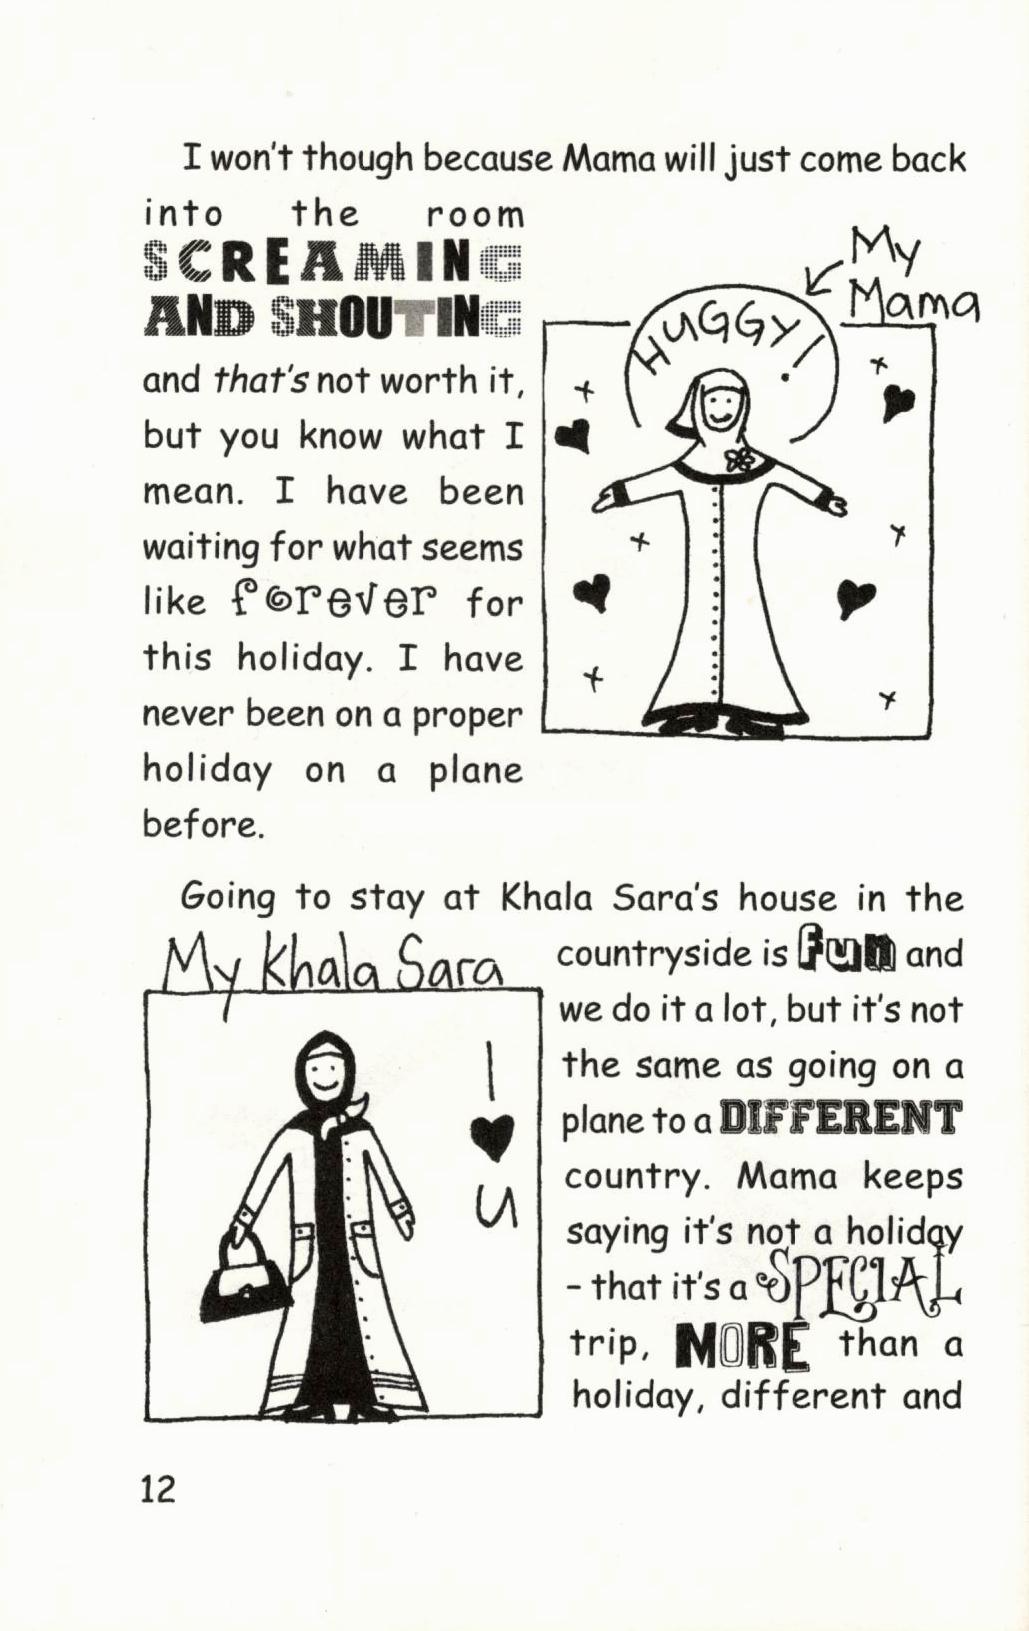 I won't though because Mama will just come back
into the room
SCREAMING
AND SHOUTING
and that's not worth it,
but you know what I
mean. I have been
waiting for what seems
like forever for
this holiday. I have
never been on a proper
holiday on a plane
before.
My
Mama
HUGGY!
Going to stay at Khala Sara's house in the
My Khala Sara
I
♥
U
countryside is fun and
we do it a lot, but it's not
the same as going on a
plane to a DIFFERENT
country. Mama keeps
saying it's not a holiday
- that it's a SPECIAL
trip, MORE than a
holiday, different and
12